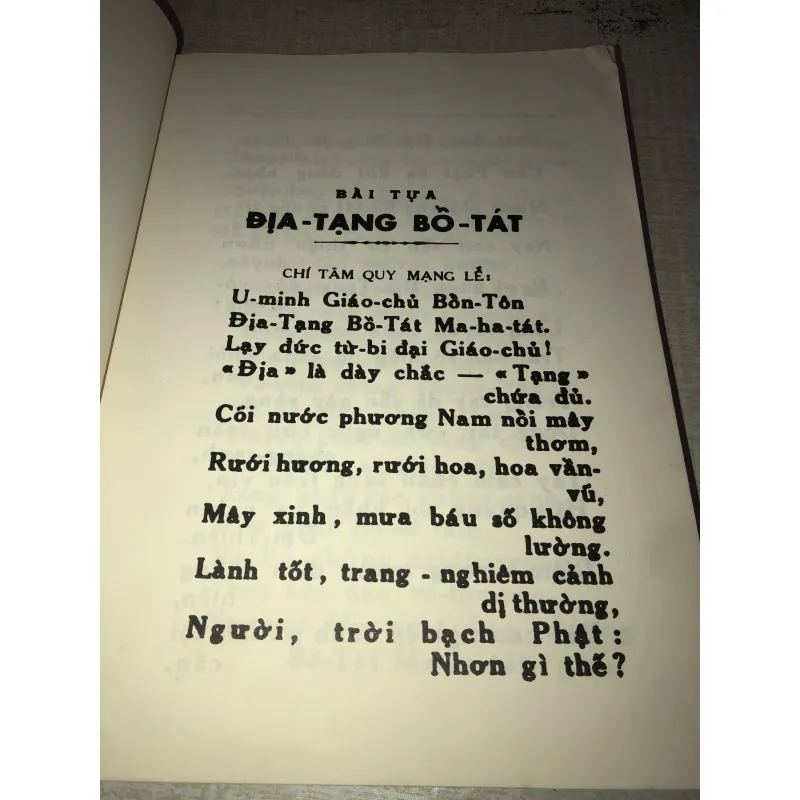 BÀI TỰA
ĐỊA-TẠNG BỒ-TÁT
CHÍ TÂM QUY MẠNG LỄ:
U-minh Giáo-chủ Bổn-Tôn
Địa-Tạng Bồ-Tát Ma-ha-tát.
Lạy đức từ-bi đại Giáo-chủ!
«Địa» là dày chắc — «Tạng»
chứa đủ.
Cõi nước phương Nam nồi mây
thơm,
Rưới hương, rưới hoa, hoa vần-
vũ,
Mây xinh, mưa báu số không
lường.
Lành tốt, trang-nghiêm cảnh
dị thường,
Người, trời bạch Phật:
Nhơn gì thế?